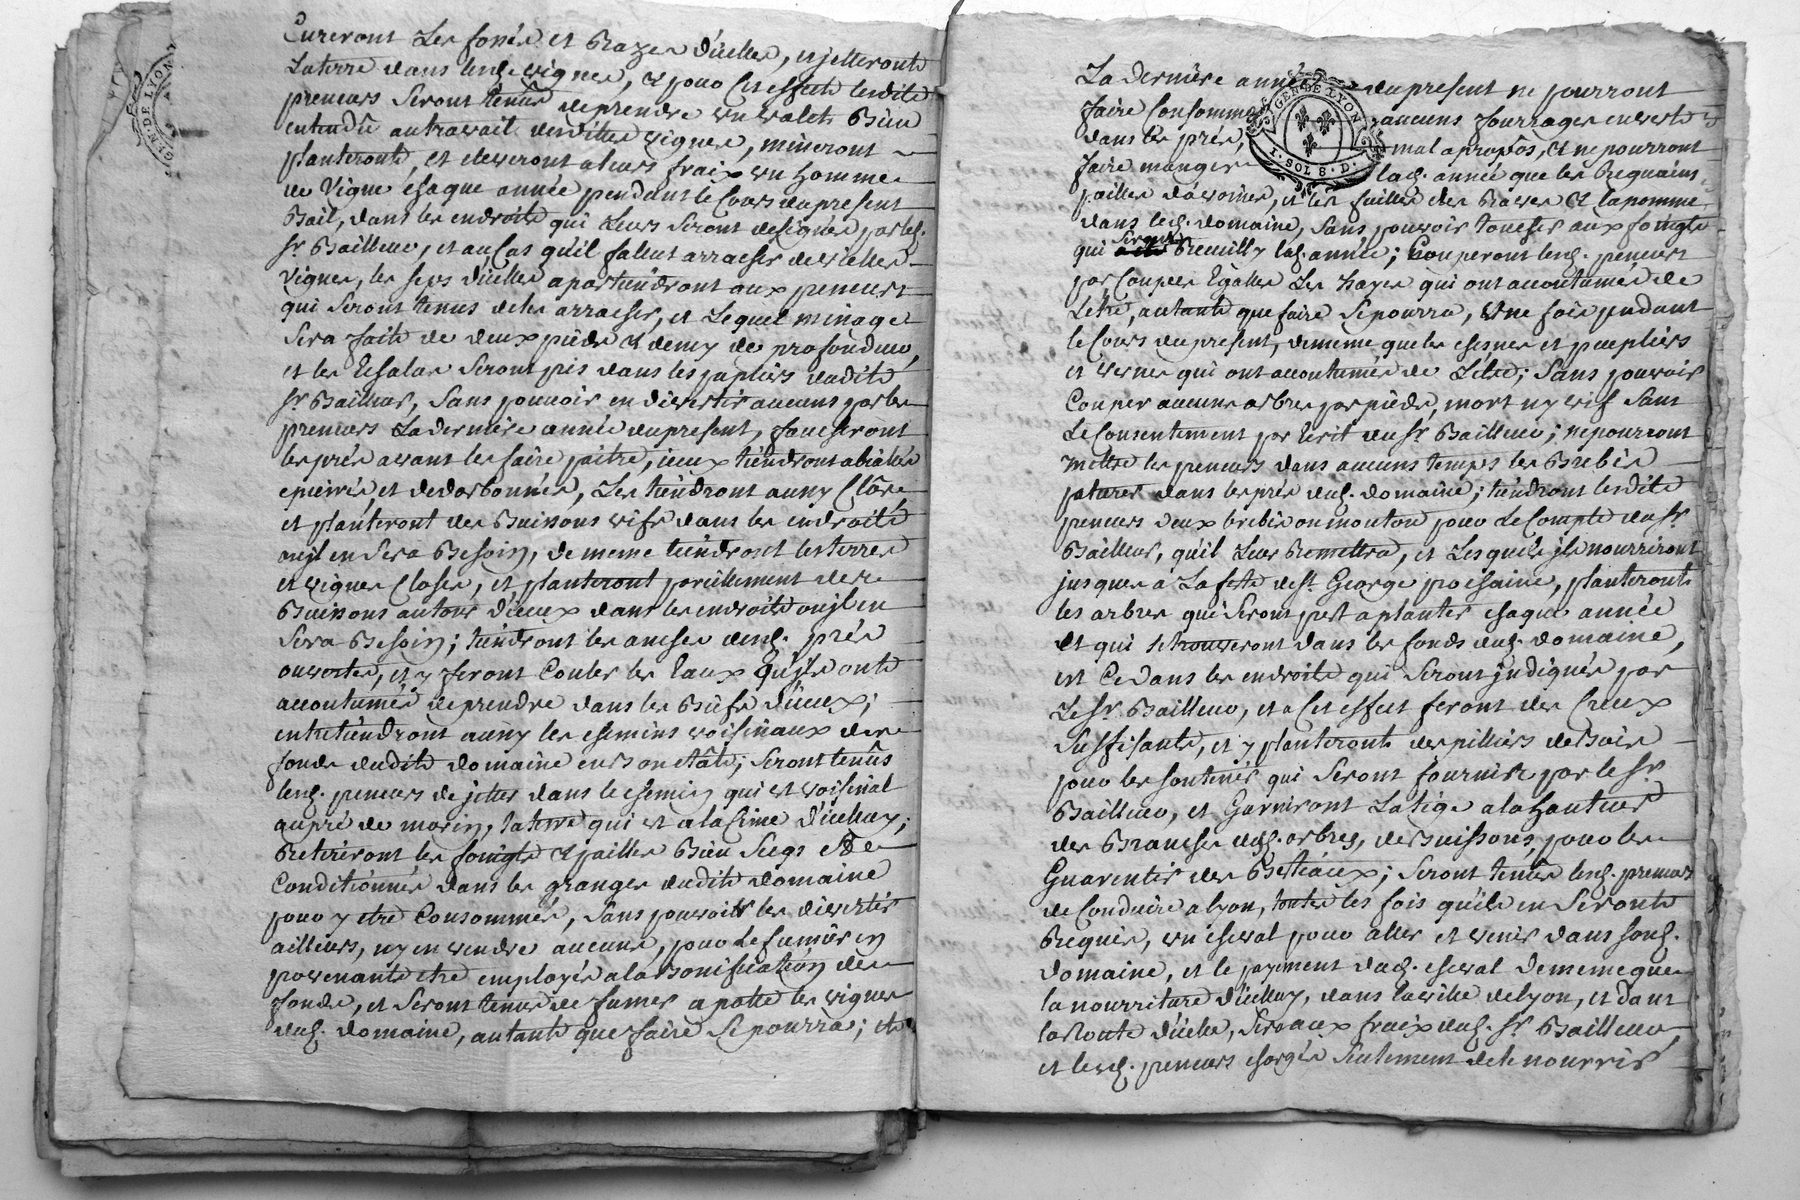 Cureront les fossés et Razes d'icelles, et jetteront
la terre dans lesd. vignes, et pour cet effect lesdits
preneurs seront tenus de prendre un valet Bien
entendû au travail desdittes vignes, mineront
planteront, et eleveront a leurs fraix un homme
de vigne chaque année pendant le Cours du present
Bail, dans les endroits qui leurs seront designés par led.
sr. Bailleur, et au Cas qu'il fallut arracher de vielles
vignes, les seps d'icelles apartiendront aux preneurs
qui seront tenus de les arracher, et lequel minage
sera fait de deux pieds et demy de profondeur,
et les Echalas seront pris dans les dudit
sr. Bailleur, sans pouvoir en divertir aucuns par les
preneurs la derniere année du present, faucheront
les prés avant les faire paître, iceux tiendront
epierrés et dedarbonnés, les tiendront aussy Clôs
et planteront des Buissons vifs dans les endroits
ou jl en sera Besoin, de meme tiendront les terres
et vignes Closes, et planteront pareillement des
Buissons autour d'iceux dans les endroits ou jl en
sera Besoin; tiendront les desd. prés
ouvertes, et y feront Couler les Eaux qu'jls onts
accoutumés de prendre dans les Biefs d'iceux;
entretiendront aussy les chemins voisinaux des
fonds dudit domaine en bon etât; seront tenûs
lesd. preneurs de jetter dans le chemin qui est voisinal
au pré de morin, la terre qui est a la Cime d'icelluy;
Retireront les foings et pailles Bien Secs et
Conditionnés dans les granges dudit domaine
pour y etre Consommés, sans pouvoir les divertir
ailleurs, ny en vendre aucuns, pour le fumier en
provenant etre employés a la Bonification des
fonds, et seront tenus de fumer a les vignes
dud. domaine, autant que faire se pourra; et
La derniere année du present ne pourront
faire Consommer aucuns fourrages en verts
dans les prés, mal apropôs, et ne pourront
faire manger lad. année que les Regains
pailles d'avoines, et les fuilles des Raves et la pomme
dans led. domaine, sans pouvoir toucher aux foings
qui seront Receuilly lad. année; Couperont lesd. preneurs
par Coupes Egalles les hayes qui ont accoutumés de
l'etre, autant que faire se pourra, une fois pendant
le Cours du present, de meme que les chesnes et peupliers
et vernes qui ont accoutumés de l'etre; sans pouvoir
Couper aucuns arbres par pieds, mort ny vif sans
le Consentement par Ecrit du sr. Bailleur; ne pourront
mettre les preneurs dans aucuns temps les Brebis
paturer dans les prés dud. domaine; tiendront lesdits
preneurs deux brebis ou moutons pour le Compte du sr.
Bailleur, qu'il leur Remettra, et lesquels jls nourriront
jusques à la fette de st. George prochaine, planteront
les arbres qui seront prest a planter chaque année
et qui se trouveront dans les fonds dud. domaine,
et Ce dans les endroits qui seront jndiqués par
le sr. Bailleur, et a Cet effect feront des Creux
suffisants, et y planteront des pilliers de Bois
pour les soutenir qui seront fournis par le sr.
Bailleur, et Garniront la tige a la hauteur
des Branches desd. arbres, de Buissons, pour les
Guarentir des Bestiaux; seront tenûs lesd. preneurs
de Conduire a lyon, toutes les fois qu'ils en seronts
Requis, un cheval pour aller et venir dans sond.
domaine, et le payement dud. cheval de meme que
la nourriture d'icelluy, dans la ville de lyon, et dans
la Route d'icelle, sera aux fraix dud. sr. Bailleur
et lesd. preneurs chargés seulement de le nourrir
GEN. DE LYON
1. SOL 8. D.
GEN. DE LYON